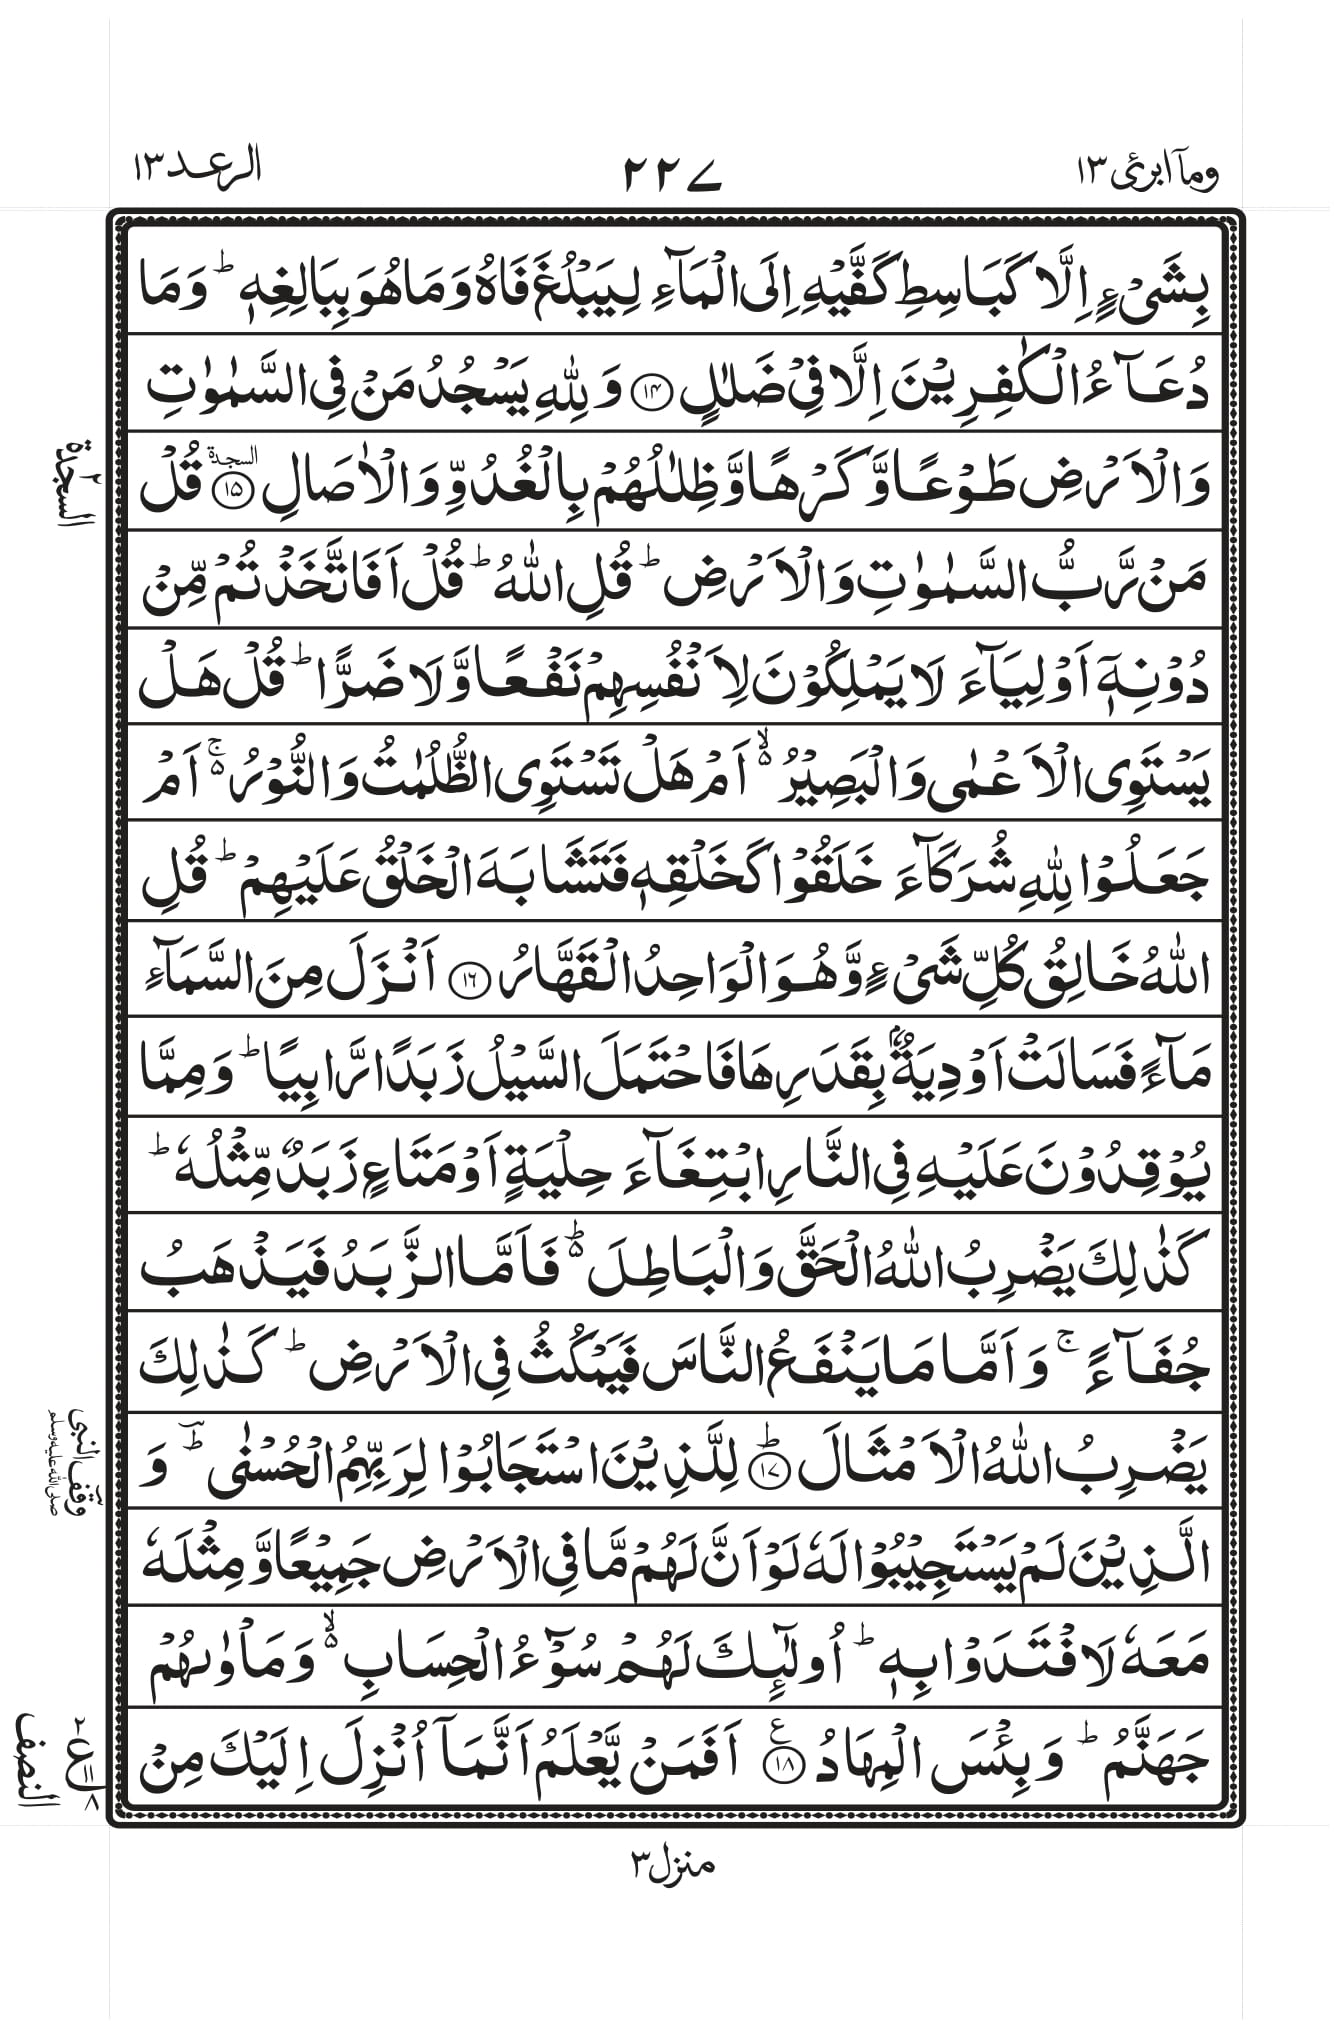 ومآ ابرئ ١٣
٢٢٧
الرعد ١٣
بِشَیۡءٍ اِلَّا کَبَاسِطِ کَفَّیۡهِ اِلَی الۡمَآءِ لِیَبۡلُغَ فَاهُ وَمَا هُوَ بِبَالِغِهٖ ؕ وَمَا
دُعَآءُ الۡکٰفِرِیۡنَ اِلَّا فِیۡ ضَلٰلٍ ﴿۱۴﴾ وَ لِلّٰهِ یَسۡجُدُ مَنۡ فِی السَّمٰوٰتِ
وَالۡاَرۡضِ طَوۡعًا وَّ کَرۡهًا وَّ ظِلٰلُهُمۡ بِالۡغُدُوِّ وَالۡاٰصَالِ ﴿۱۵﴾ السجدة قُلۡ
السجدة ٢
مَنۡ رَّبُّ السَّمٰوٰتِ وَالۡاَرۡضِ ؕ قُلِ اللّٰهُ ؕ قُلۡ اَفَاتَّخَذۡتُمۡ مِّنۡ
دُوۡنِهٖۤ اَوۡلِیَآءَ لَا یَمۡلِکُوۡنَ لِاَنۡفُسِهِمۡ نَفۡعًا وَّلَا ضَرًّا ؕ قُلۡ هَلۡ
یَسۡتَوِی الۡاَعۡمٰی وَالۡبَصِیۡرُ ۙ۬ اَمۡ هَلۡ تَسۡتَوِی الظُّلُمٰتُ وَالنُّوۡرُ ۚ۬ اَمۡ
جَعَلُوۡا لِلّٰهِ شُرَکَآءَ خَلَقُوۡا کَخَلۡقِهٖ فَتَشَابَهَ الۡخَلۡقُ عَلَیۡهِمۡ ؕ قُلِ
اللّٰهُ خَالِقُ کُلِّ شَیۡءٍ وَّهُوَ الۡوَاحِدُ الۡقَهَّارُ ﴿۱۶﴾ اَنۡزَلَ مِنَ السَّمَآءِ
مَآءً فَسَالَتۡ اَوۡدِیَةٌۢ بِقَدَرِهَا فَاحۡتَمَلَ السَّیۡلُ زَبَدًا رَّابِیًا ؕ وَمِمَّا
یُوۡقِدُوۡنَ عَلَیۡهِ فِی النَّارِ ابۡتِغَآءَ حِلۡیَةٍ اَوۡ مَتَاعٍ زَبَدٌ مِّثۡلُهٗ ؕ
کَذٰلِكَ یَضۡرِبُ اللّٰهُ الۡحَقَّ وَالۡبَاطِلَ ؕ۬ فَاَمَّا الزَّبَدُ فَیَذۡهَبُ
جُفَآءً ۚ وَ اَمَّا مَا یَنۡفَعُ النَّاسَ فَیَمۡکُثُ فِی الۡاَرۡضِ ؕ کَذٰلِكَ
یَضۡرِبُ اللّٰهُ الۡاَمۡثَالَ ﴿ؕ۱۷﴾ لِلَّذِیۡنَ اسۡتَجَابُوۡا لِرَبِّهِمُ الۡحُسۡنٰی ؕؔ وَ
وقف النبی صلی اللہ علیہ وسلم
الَّذِیۡنَ لَمۡ یَسۡتَجِیۡبُوۡا لَهٗ لَوۡ اَنَّ لَهُمۡ مَّا فِی الۡاَرۡضِ جَمِیۡعًا وَّ مِثۡلَهٗ
مَعَهٗ لَافۡتَدَوۡا بِهٖ ؕ اُولٰٓئِكَ لَهُمۡ سُوۡٓءُ الۡحِسَابِ ۙ۬ وَ مَاۡوٰىهُمۡ
جَهَنَّمُ ؕ وَبِئۡسَ الۡمِهَادُ ﴿۱۸﴾ ع اَفَمَنۡ یَّعۡلَمُ اَنَّمَاۤ اُنۡزِلَ اِلَیۡكَ مِنۡ
٢ ع ١١ ٨
النصف
منزل ٣